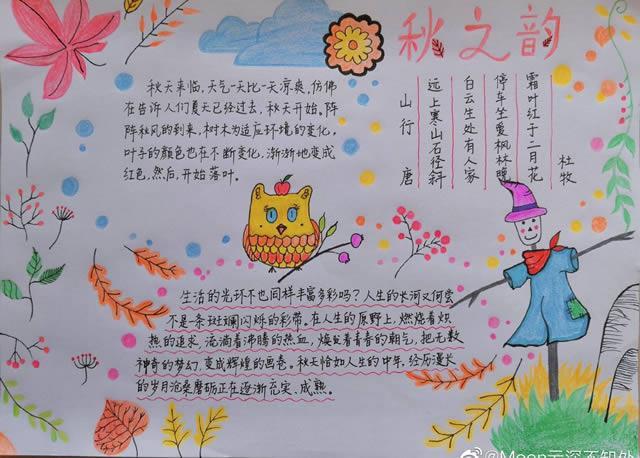 秋之韵
秋天来临，天气一天比一天凉爽，仿佛
在告诉人们夏天已经过去，秋天开始。阵
阵秋风的到来，树木为适应环境的变化，
叶子的颜色也在不断变化，渐渐地变成
红色，然后，开始落叶。
山行 唐
远上寒山石径斜
白云生处有人家
停车坐爱枫林晚
霜叶红于二月花
杜牧
生活的光环不也同样丰富多彩吗？人生的长河又何尝
不是一条斑斓闪烁的彩带。在人生的原野上，燃烧着炽
热的追求，流淌着沸腾的热血，焕发着青春的朝气，把无数
神奇的梦幻，变成辉煌的画卷。秋天恰如人生的中年，经历漫长
的岁月沧桑磨砺正在逐渐充实、成熟。
@Moon云深不知处